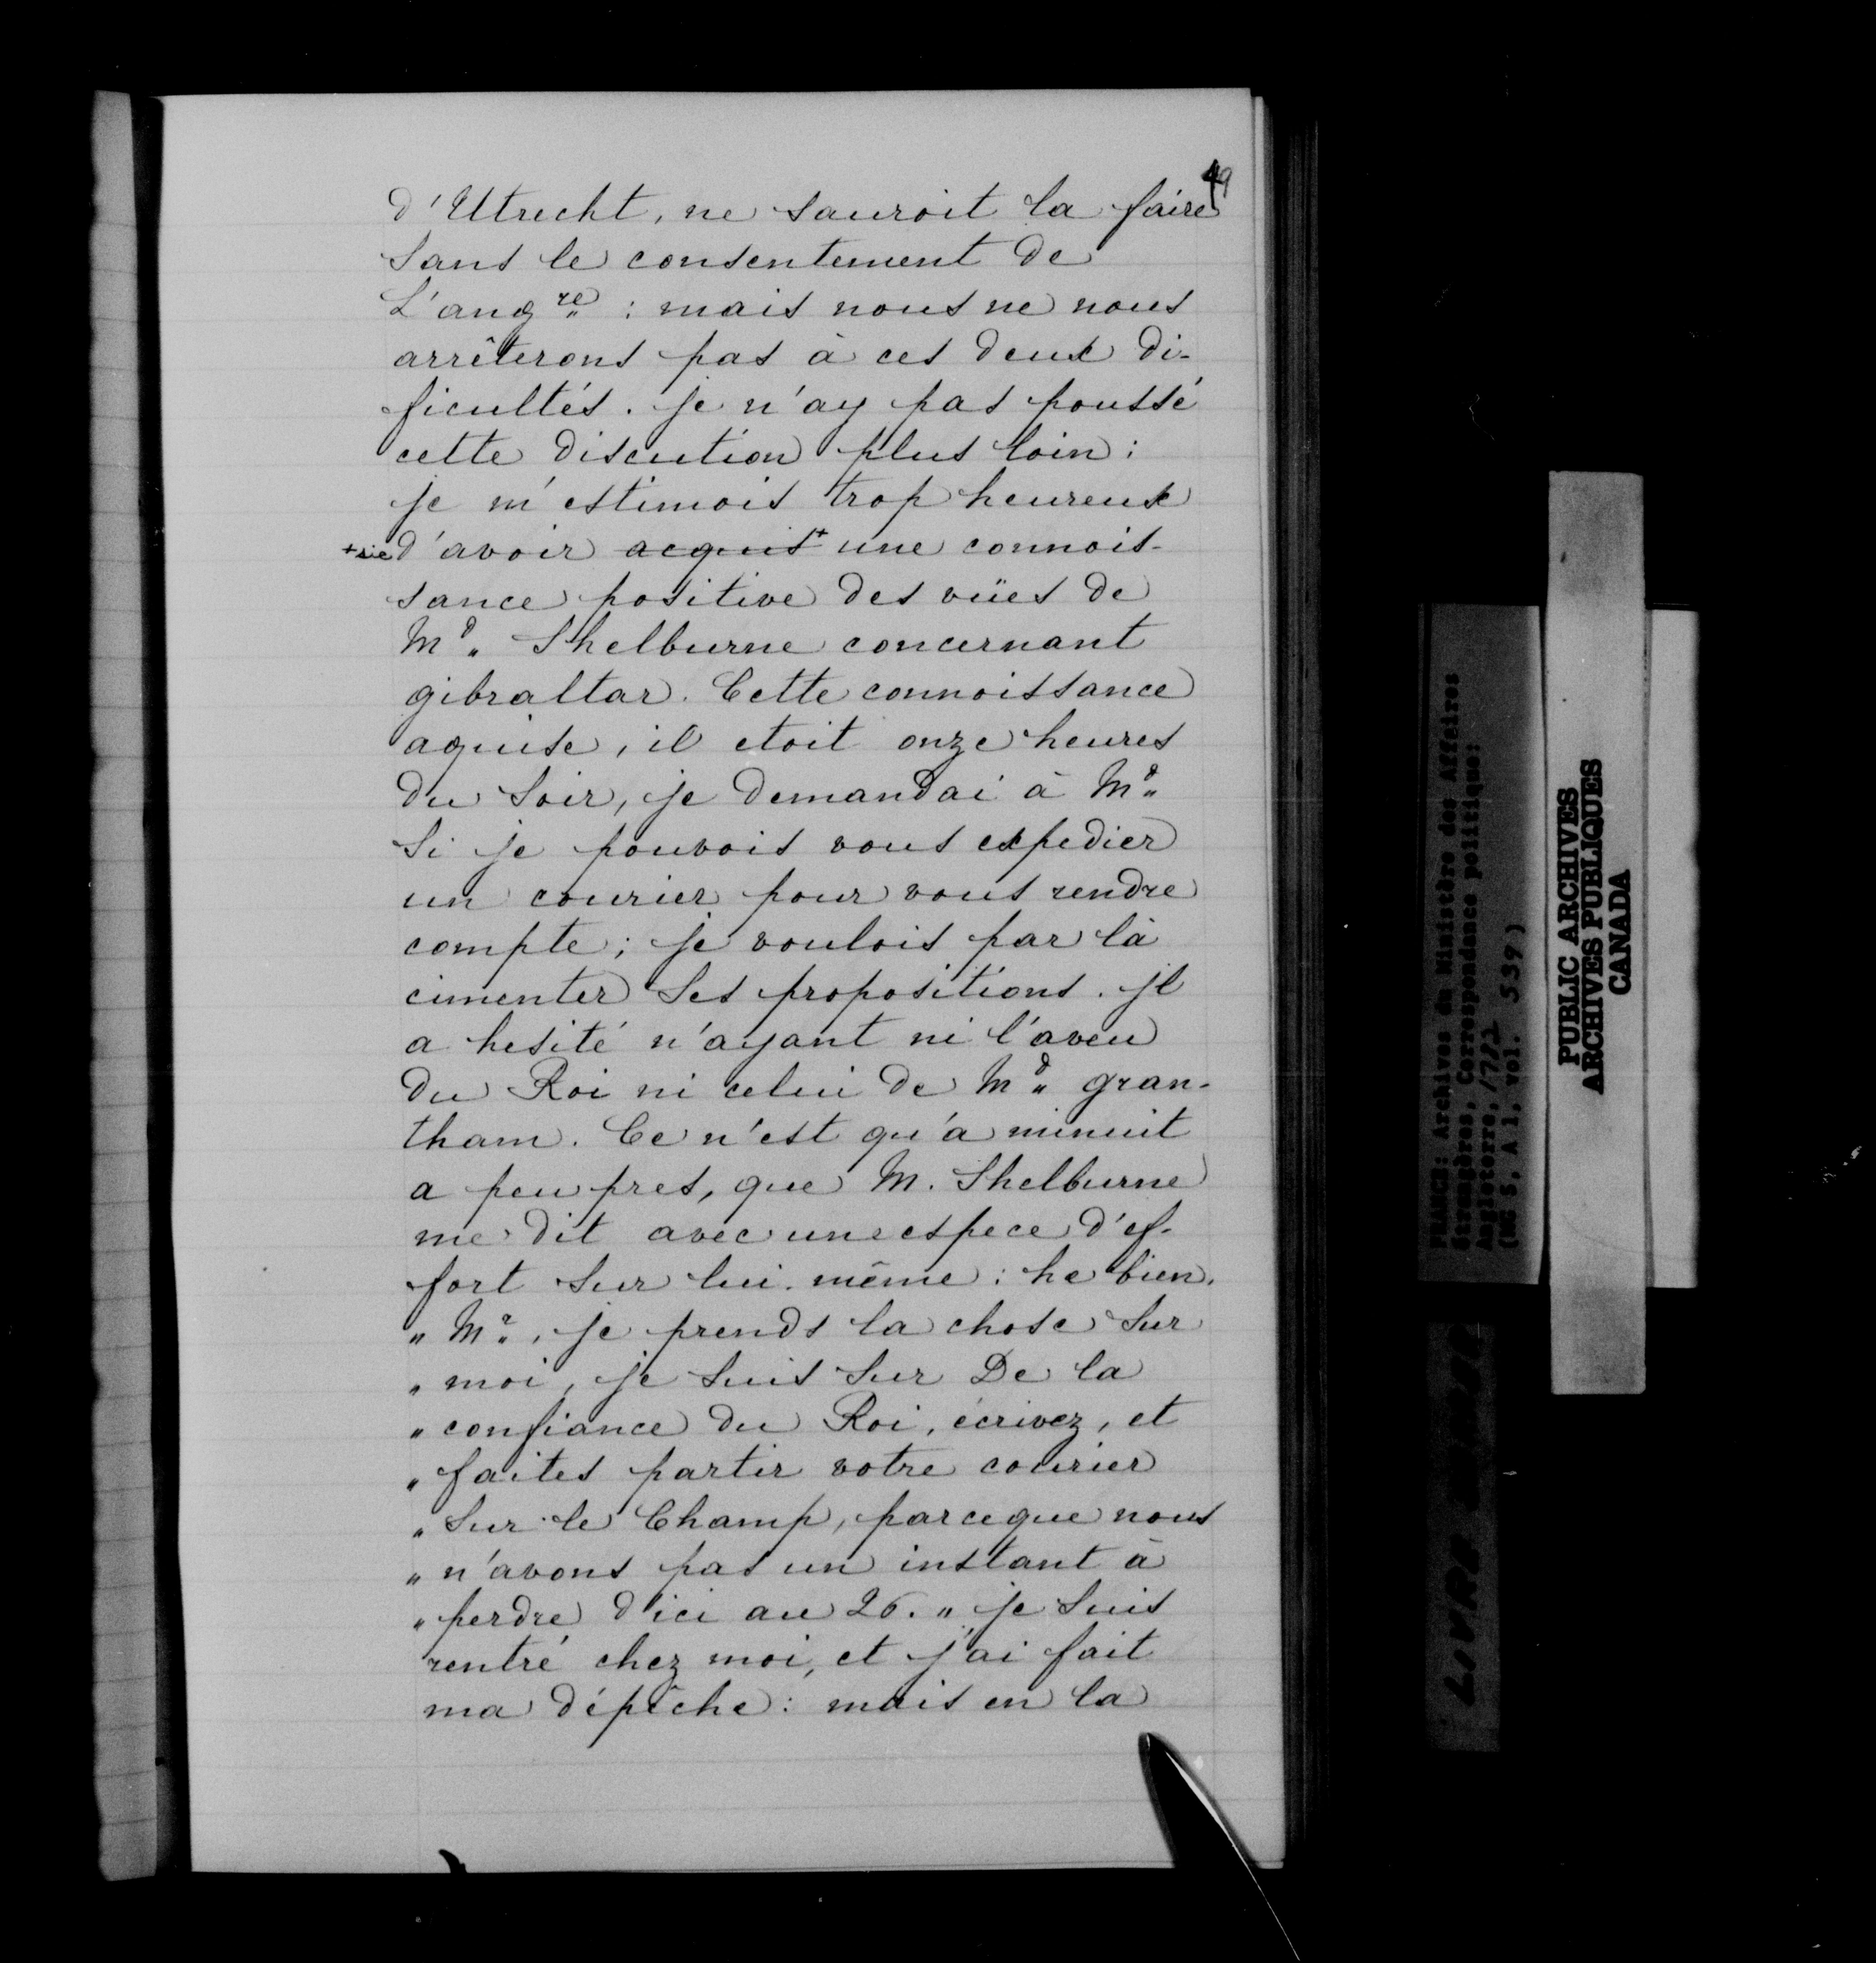 49
d'Utrecht, ne sauroit la faire
sans le consentement de
L'angre : mais nous ne nous
arrêterons pas à ces deux di-
ficultés. je n'ay pas poussé
cette discution plus loin :
je m'estimois trop heureux
+sic d'avoir acquis+ une connois-
sance positive des vües de
Md. Shelburne concernant
gibraltar. Cette connoissance
aquise, il etoit onze heures
du soir, je demandai à Md.
Si je pouvois vous expedier
un courier pour vous rendre
compte ; je voulois par là
cimenter ses propositions. jl
a hesité n'ayant ni l'aveu
du Roi ni celui de Md. gran-
tham. Ce n'est qu'a minuit
a peu pres, que M. Shelburne
me dit avec une espece d'ef-
fort sur lui-même : he bien.
" Mr., je prends la chose sur
" moi, je suis sur De la
" confiance du Roi, écrivez, et
" faites partir votre courier
" sur le Champ, parceque nous
" n'avons pas un instant à
" perdre d'ici au 26. " je suis
rentré chez moi, et j'ai fait
ma dépêche : mais en la
FRANCE: Archives du Ministère des Affaires
Étrangères, Correspondance politique:
Angleterre, 1782
(MG 5, A 1, vol. 539)
PUBLIC ARCHIVES
ARCHIVES PUBLIQUES
CANADA
LIVRE